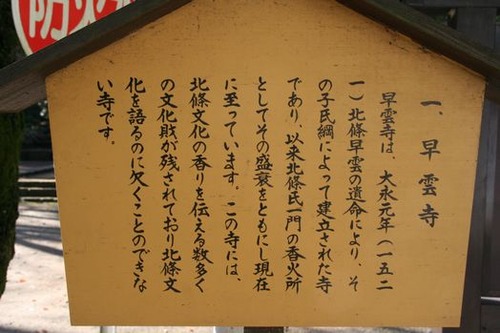 防火
一、早雲寺
早雲寺は、大永元年（一五二
一）北條早雲の遺命により、そ
の子氏綱によって建立された寺
であり、以来北條氏一門の香火所
としてその盛衰をともにし現在
に至っています。この寺には、
北條文化の香りを伝える数多く
の文化財が残されており北條文
化を語るのに欠くことのできな
い寺です。